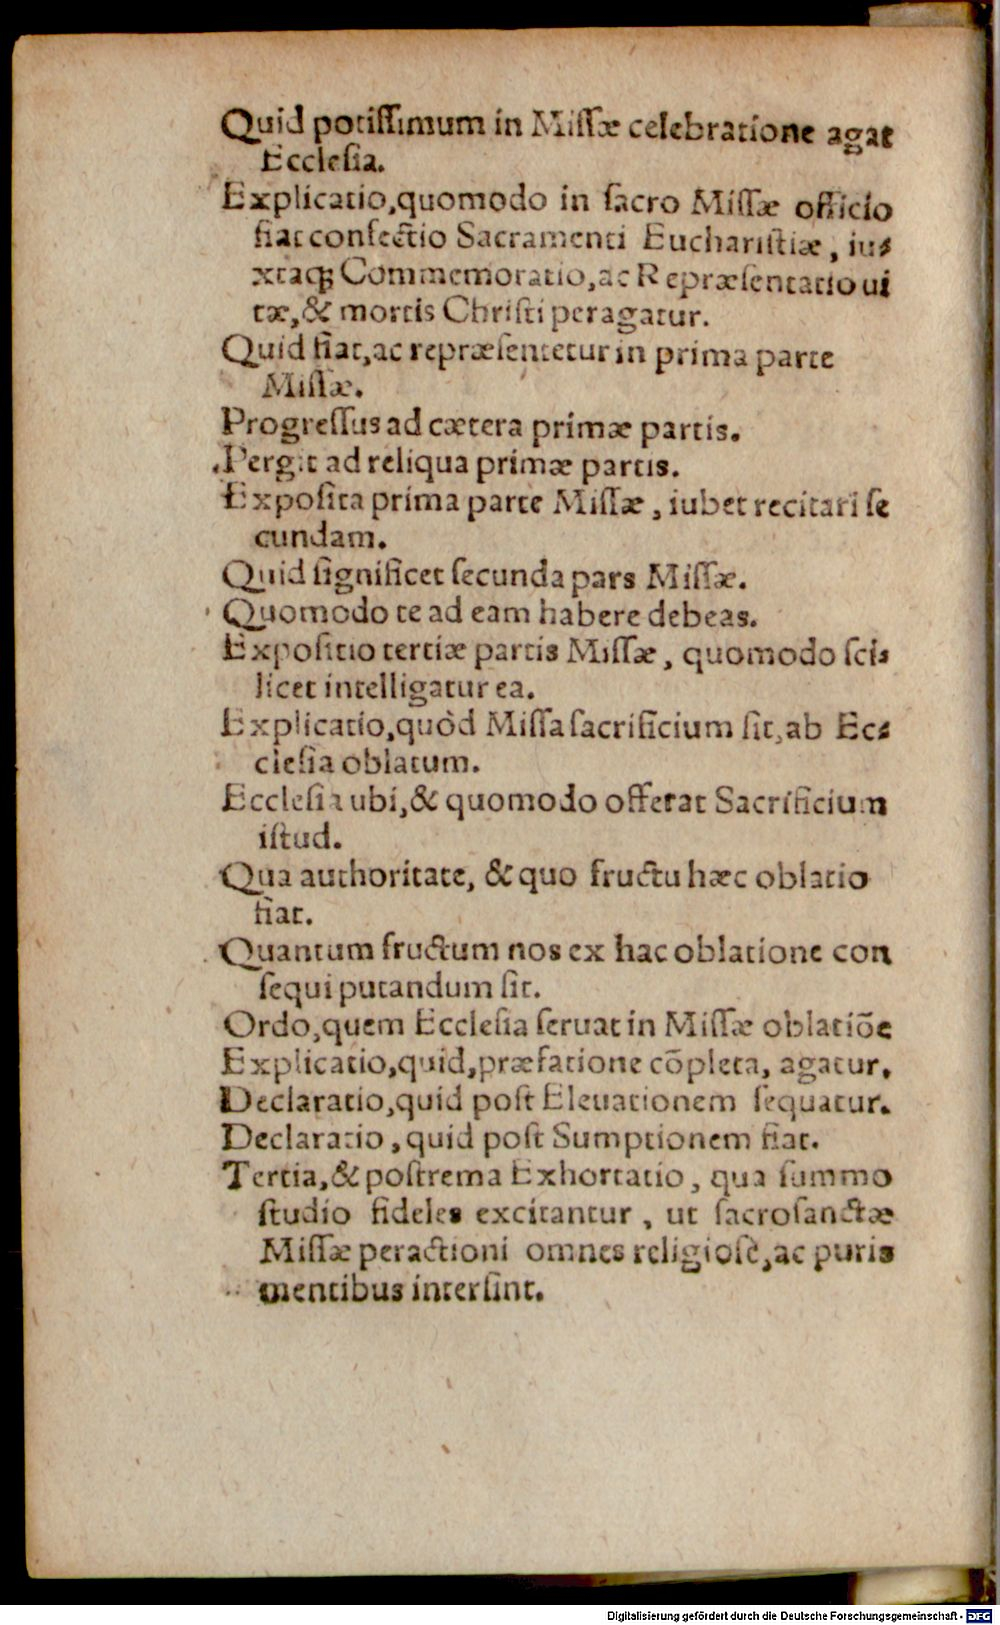 Quid potiſſimum in Miſſæ celebratione agat
Eccleſia.
Explicatio, quomodo in ſacro Miſſæ officio
fiat confectio Sacramenti Euchariſtiæ, iu⸗
xtaq́; Commemoratio, ac Repræſentatio ui
tæ, & mortis Chriſti peragatur.
Quid fiat, ac repræſentetur in prima parte
Miſſæ.
Progreſſus ad cætera primæ partis.
Pergit ad reliqua primæ partis.
Expoſita prima parte Miſſæ, iubet recitari ſe
cundam.
Quid ſignificet ſecunda pars Miſſæ.
Quomodo te ad eam habere debeas.
Expoſitio tertiæ partis Miſſæ, quomodo ſci⸗
licet intelligatur ea.
Explicatio, quòd Miſſa ſacrificium ſit, ab Ec⸗
cleſia oblatum.
Eccleſia ubi, & quomodo offerat Sacrificium
iſtud.
Qua authoritate, & quo fructu hæc oblatio
fiat.
Quantum fructum nos ex hac oblatione con
ſequi putandum ſit.
Ordo, quem Eccleſia ſeruat in Miſſæ oblatiōe
Explicatio, quid, præfatione cōpleta, agatur.
Declaratio, quid poſt Eleuationem ſequatur.
Declaratio, quid poſt Sumptionem fiat.
Tertia, & poſtrema Exhortatio, qua ſummo
ſtudio fideles excitantur, ut ſacroſanctæ
Miſſæ peractioni omnes religioſè, ac puris
mentibus interſint.
Digitalisierung gefördert durch die Deutsche Forschungsgemeinschaft - DFG